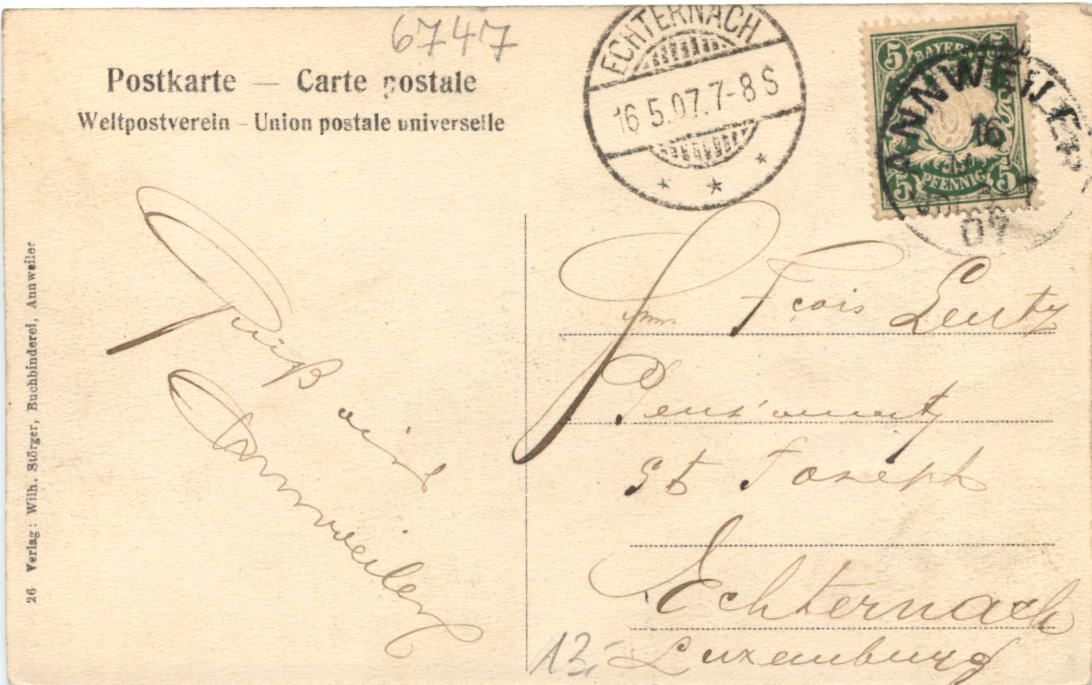 6747
Postkarte — Carte postale
Weltpostverein – Union postale universelle
ECHTERNACH
16.5.07.7-8 S
BAYERN
5 5
PFENNIG
5 5
ANNWEILER
16
07
26 Verlag: Wilh. Störger, Buchbinderei, Annweiler
Gruß aus
Annweiler
Fçois Lentz
Pensionat
St Joseph
Echternach
Luxemburg
13,-